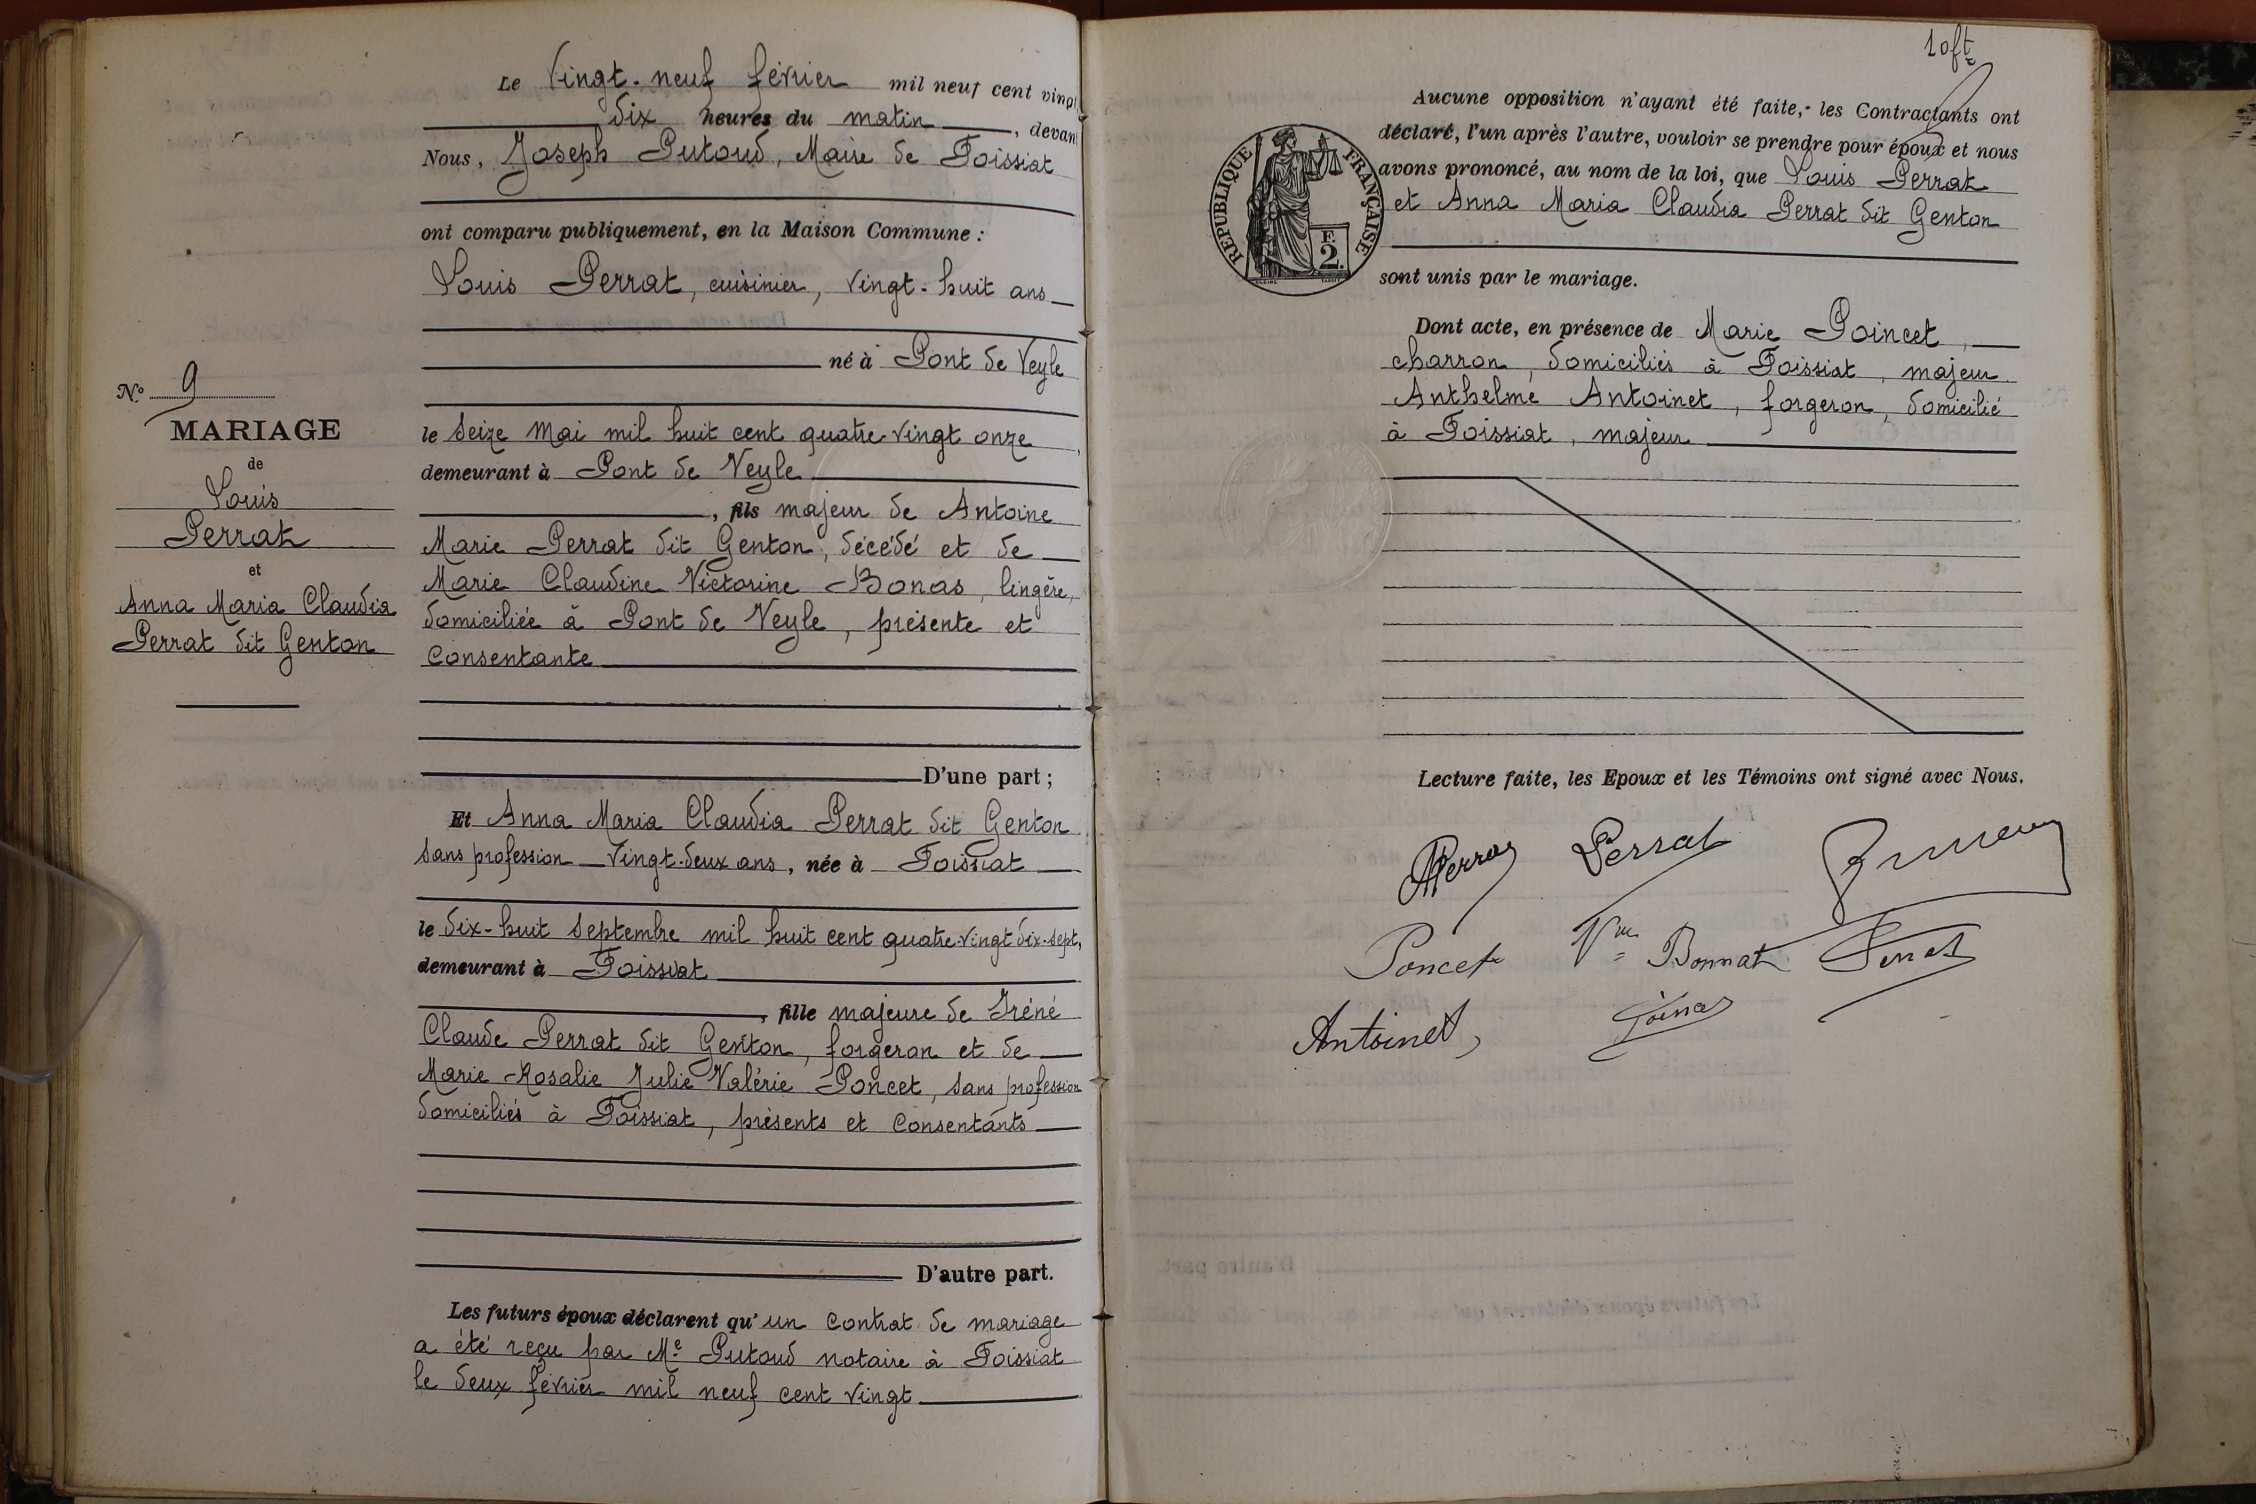 Le vingt-neuf février mil neuf cent vingt
dix heures du matin, devant
Nous, Joseph Putoud, Maire de Foissiat
ont comparu publiquement, en la Maison Commune :
Louis Perrat, cuisinier, vingt-huit ans
né à Pont de Veyle
le seize mai mil huit cent quatre vingt onze
demeurant à Pont de Veyle
, fils majeur de Antoine
Marie Perrat dit Genton, décédé et de
Marie Claudine Victorine Bonas, lingère,
domiciliée à Pont de Veyle, présente et
consentante
D'une part ;
Et Anna Maria Claudia Perrat dit Genton
sans profession vingt-deux ans, née à Foissiat
le dix-huit septembre mil huit cent quatre-vingt dix-sept,
demeurant à Foissiat
, fille majeure de Iréné
Claude Perrat dit Genton, forgeron et de
Marie Rosalie Julie Valérie Poncet, sans profession
domiciliés à Foissiat, présents et consentants
D'autre part.
Les futurs époux déclarent qu'un contrat de mariage
a été reçu par Me Putoud notaire à Foissiat
le deux février mil neuf cent vingt
No 9
MARIAGE
de
Louis
Perrat
et
Anna Maria Claudia
Perrat dit Genton
Aucune opposition n'ayant été faite, les Contractants ont
déclaré, l'un après l'autre, vouloir se prendre pour époux et nous
avons prononcé, au nom de la loi, que Louis Perrat
et Anna Maria Claudia Perrat dit Genton
sont unis par le mariage.
Dont acte, en présence de Marie Poincet,
charron, domiciliés à Foissiat, majeur
Anthelme Antoinet, forgeron, domicilié
à Foissiat, majeur
Lecture faite, les Epoux et les Témoins ont signé avec Nous.
Perrat
Poncet Vve Bonnat Perrat
Antoinet
REPUBLIQUE FRANÇAISE
F.
2.